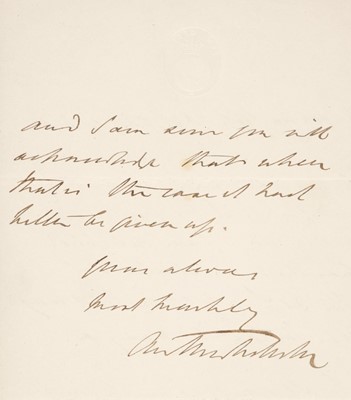 and I am sure you will
acknowledge that when
that is the case it had
better be given up.
Yours always
most truly